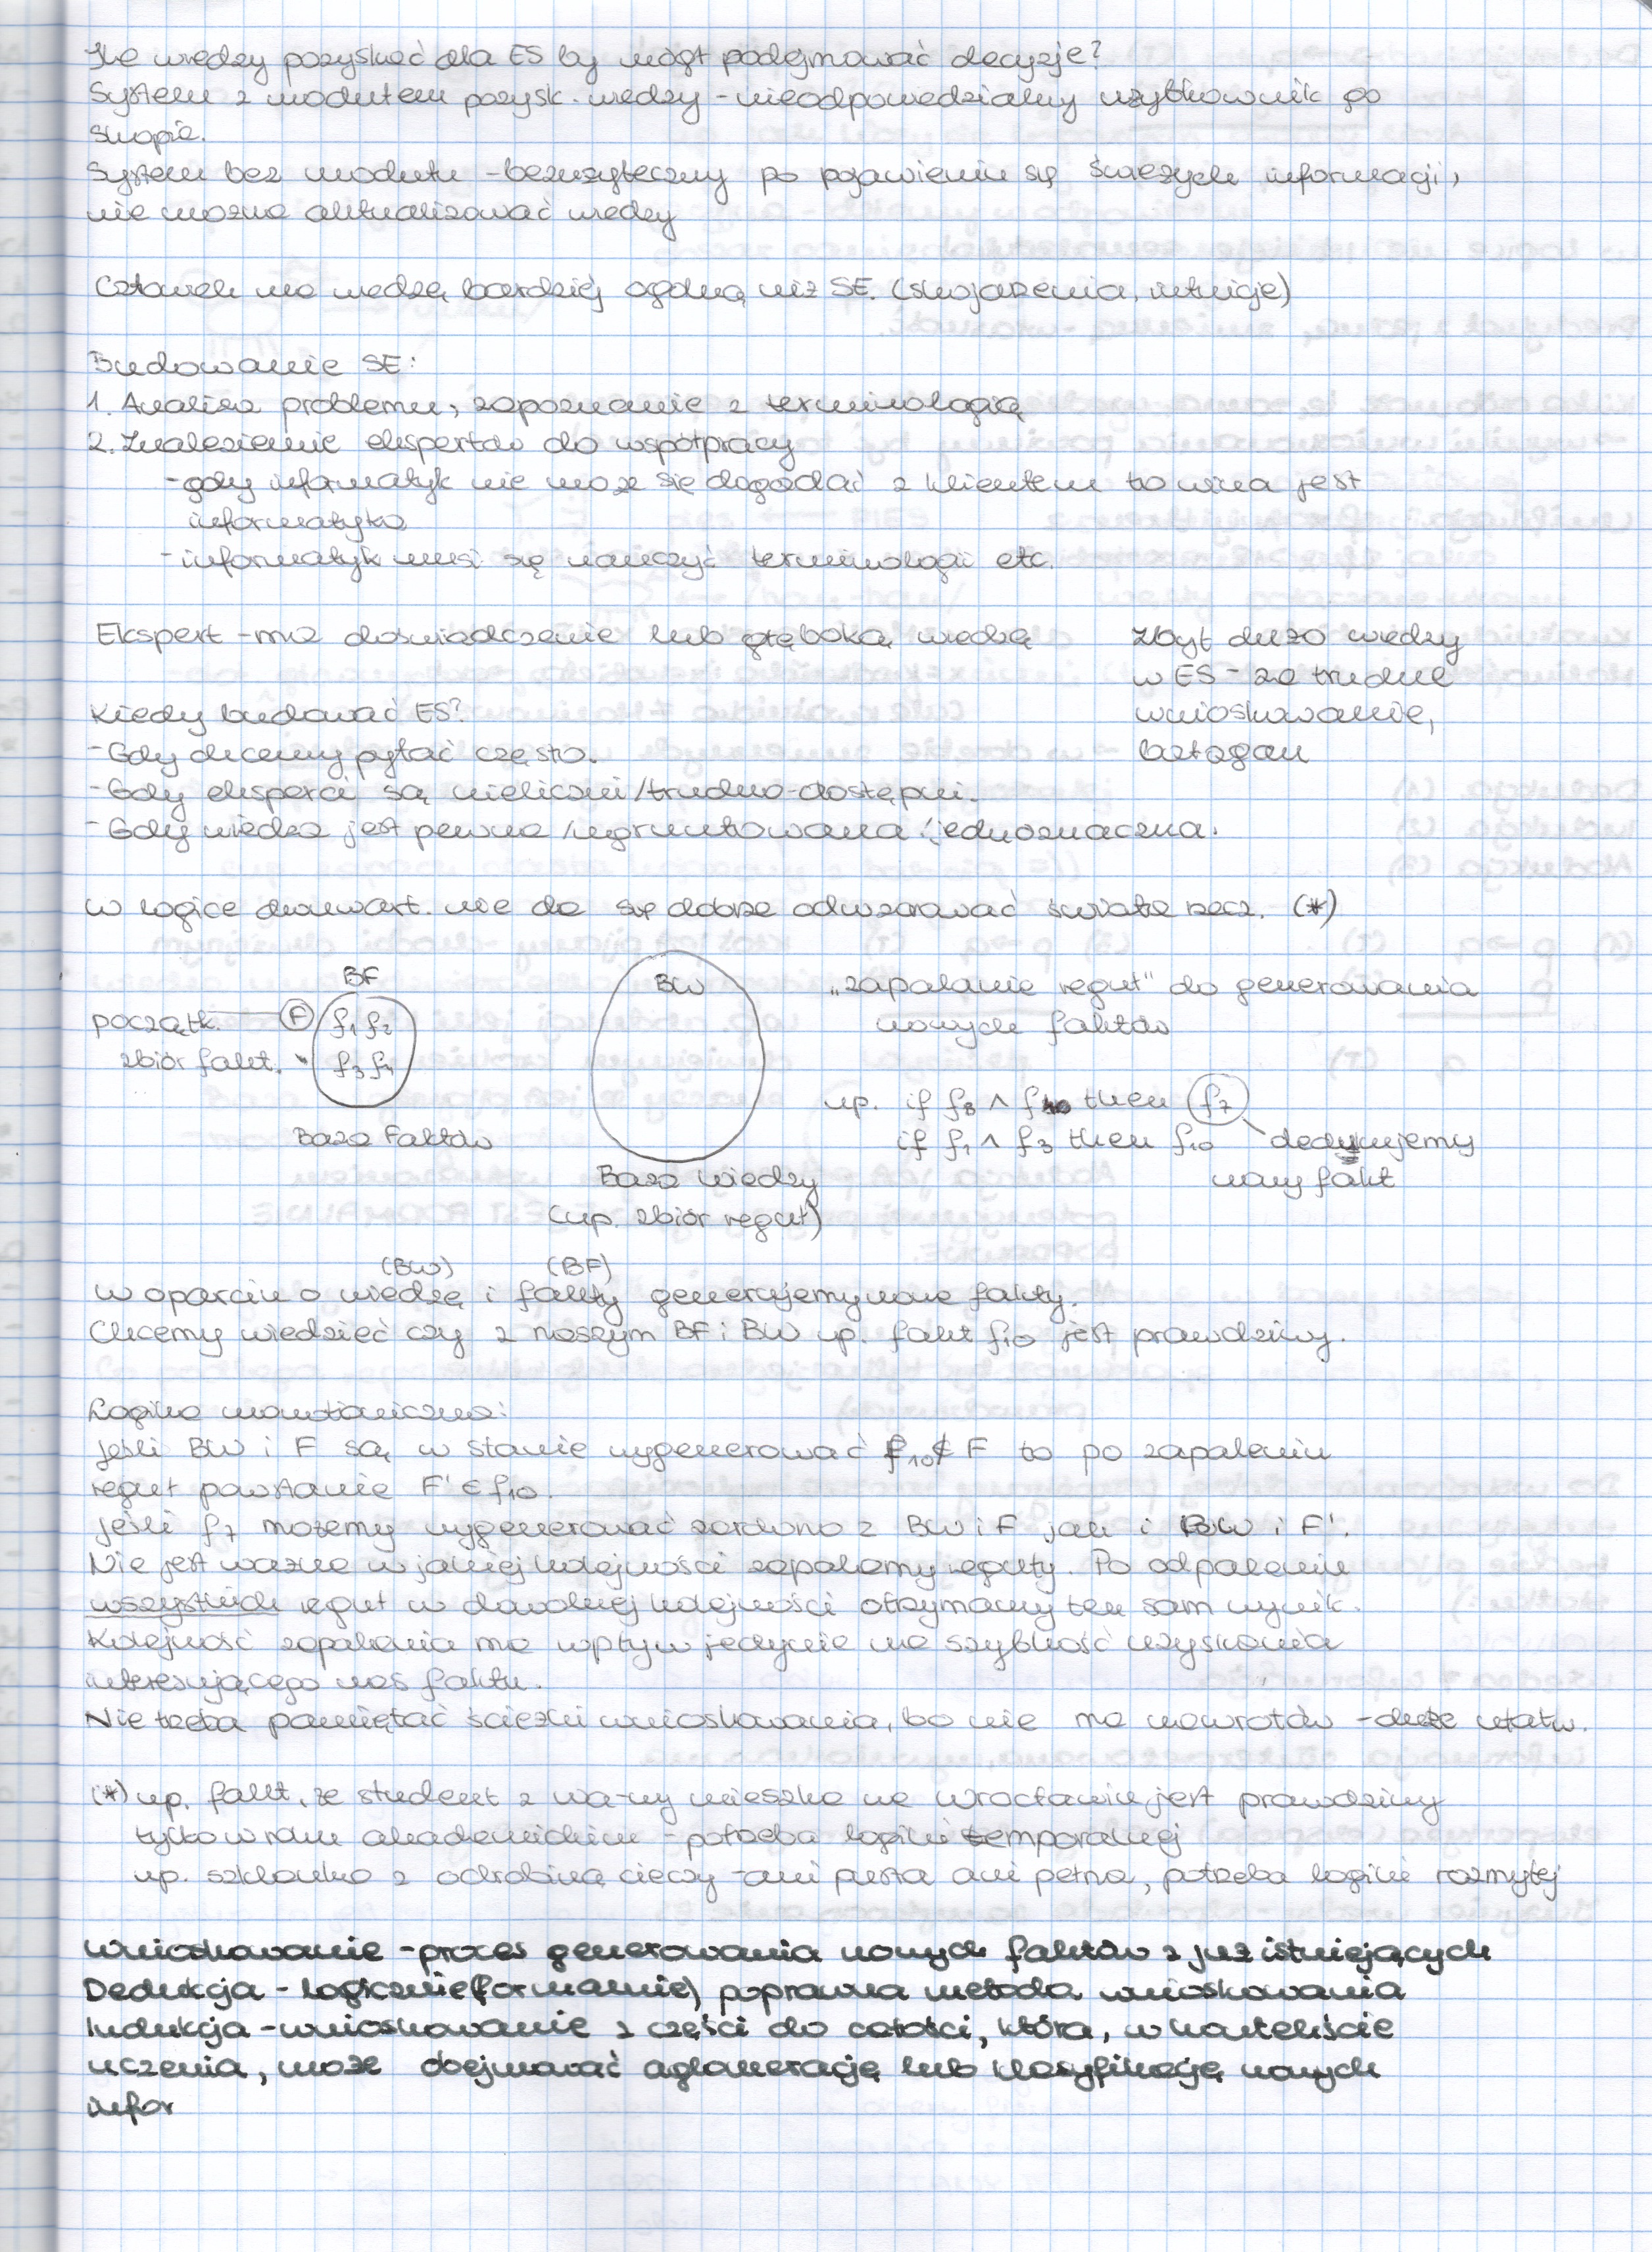 Ile wiedzy pozyskać dla ES by mógł podejmować decyzje?
System z modułem pozysk. wiedzy - nieodpowiedzialny użytkownik go
skopie.
System bez modułu - bezużyteczny po pojawieniu się świeżych informacji,
nie można aktualizować wiedzy
Człowiek ma wiedzę bardziej ogólną niż SE. (skojarzenia, intuicje)
Budowanie SE:
1. Analiza problemu, zapoznanie z terminologią
2. Znalezienie ekspertów do współpracy
- gdy informatyk nie może się dogadać z klientem to wina jest
informatyka
- informatyk musi się nauczyć terminologii etc.
Ekspert - ma doświadczenie lub głęboką wiedzę
Zbyt dużo wiedzy
w ES - za trudne
wnioskowanie,
bałagan
Kiedy budować ES?
- Gdy chcemy pytać często.
- Gdy eksperci są nieliczni/trudno-dostępni.
- Gdy wiedza jest pewna/ugruntowana/jednoznaczna.
W logice dwuwart. nie da się dobrze odwzorować świata rzecz. (*)
BF
początk.
zbiór fakt.
F
f1 f2
f3 f4
Baza Faktów
BW
Baza Wiedzy
(np. zbiór reguł)
„zapalanie reguł" do generowania
nowych faktów
np. if f8 ∧ f10 then f7
if f1 ∧ f3 then f10
dedukujemy
nowy fakt
(BW) (BF)
W oparciu o wiedzę i fakty generujemy nowe fakty.
Chcemy wiedzieć czy z naszym BF i BW np. fakt f10 jest prawdziwy.
Logika monotoniczna:
Jeśli BW i F są w stanie wygenerować f10 ∉ F to po zapaleniu
reguł powstanie F' ∈ f10.
Jeśli f7 możemy wygenerować zarówno z BW i F jak i BW i F'.
Nie jest ważne w jakiej kolejności zapalamy reguły. Po odpaleniu
wszystkich reguł w dowolnej kolejności otrzymamy ten sam wynik.
Kolejność zapalania ma wpływ jedynie na szybkość uzyskania
interesującego nas faktu.
Nie trzeba pamiętać ścieżki wnioskowania, bo nie ma nawrotów - duże ułatw.
(*) np. fakt, że student z Wa-wy mieszka we Wrocławiu jest prawdziwy
tylko w roku akademickim - potrzeba logiki temporalnej
np. szklanka z odrobiną cieczy - ani pusta ani pełna, potrzeba logiki rozmytej
Wnioskowanie - proces generowania nowych faktów z już istniejących
Dedukcja - logicznie (formalnie) poprawna metoda wnioskowania
Indukcja - wnioskowanie z części do całości, która, w kontekście
uczenia, może obejmować aglomerację lub klasyfikację nowych
infor